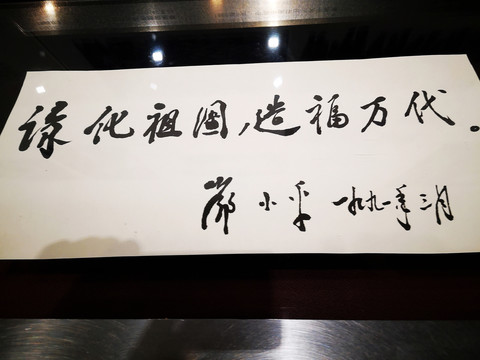 绿化祖国,造福万代。
邓小平 一九九一年三月